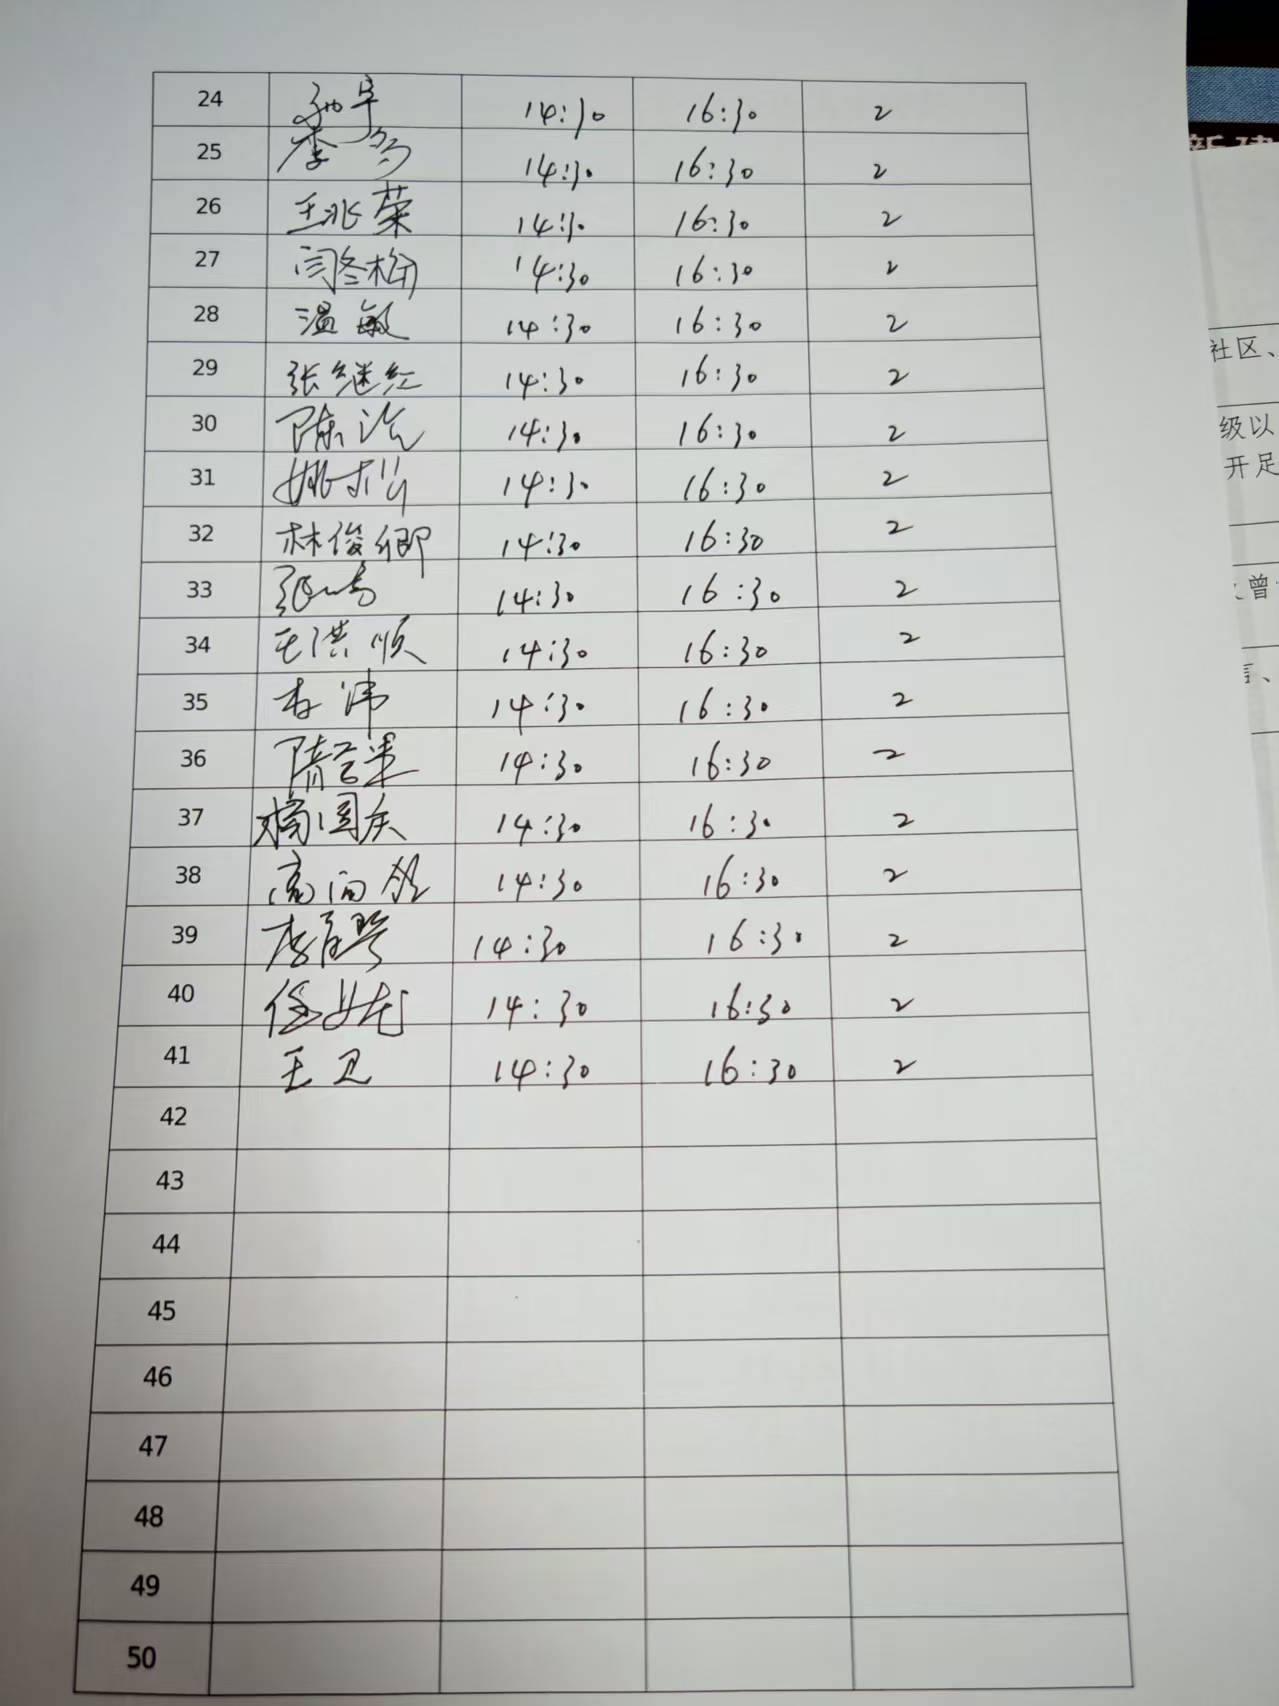 24 14:30 16:30 2
25 李 14:30 16:30 2
26 王兆荣 14:30 16:30 2
27 闫冬梅 14:30 16:30 2
28 温敏 14:30 16:30 2
29 张继红 14:30 16:30 2
30 陈 14:30 16:30 2
31 姚 14:30 16:30 2
32 林俊卿 14:30 16:30 2
33 14:30 16:30 2
34 王洪顺 14:30 16:30 2
35 14:30 16:30 2
36 隋 14:30 16:30 2
37 国庆 14:30 16:30 2
38 高向 14:30 16:30 2
39 李 14:30 16:30 2
40 14:30 16:30 2
41 王卫 14:30 16:30 2
42
43
44
45
46
47
48
49
50
社区、
级以
开足
曾